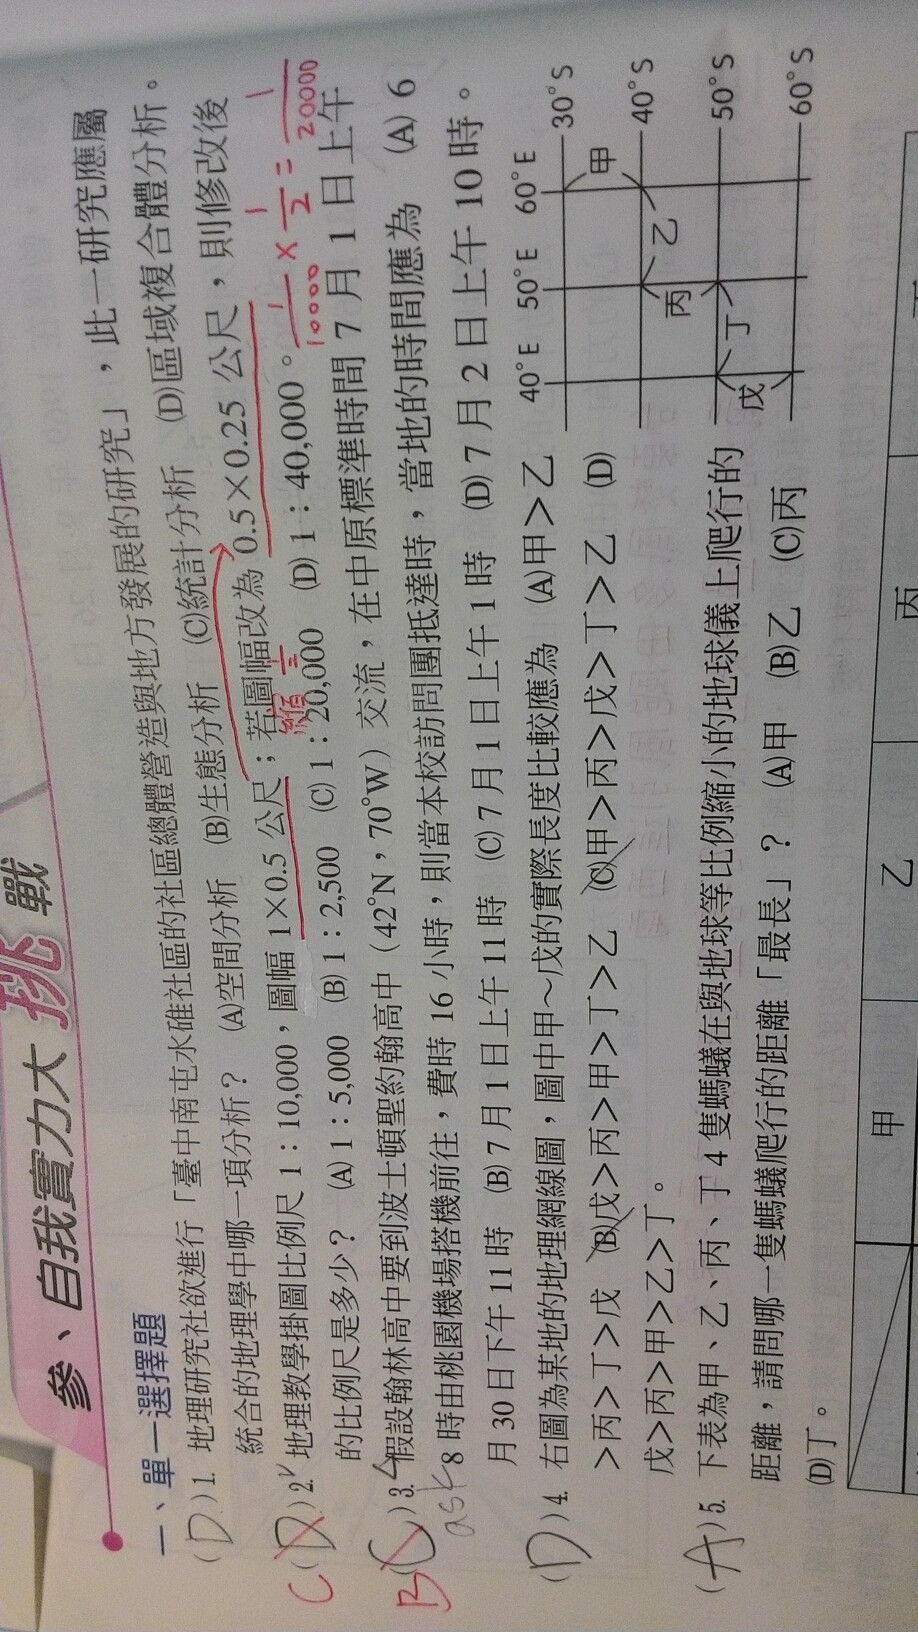 參、自我實力大挑戰
一、單一選擇題
(D) 1. 地理研究社欲進行「臺中南屯水碓社區的社區總體營造與地方發展的研究」，此一研究應屬
統合的地理學中哪一項分析？ (A)空間分析 (B)生態分析 (C)統計分析 (D)區域複合體分析。
C (D) 2. 地理教學掛圖比例尺 1：10,000，圖幅 1×0.5 公尺；若圖幅改為 0.5×0.25 公尺，則修改後
縮 1/2
1/10000 × 1/2 = 1/20000
的比例尺是多少？ (A) 1：5,000 (B) 1：2,500 (C) 1：20,000 (D) 1：40,000。
B (C) 3. 假設翰林高中要到波士頓聖約翰高中（42°N，70°W）交流，在中原標準時間 7 月 1 日上午
ask
8 時由桃園機場搭機前往，費時 16 小時，則當本校訪問團抵達時，當地的時間應為 (A) 6
月 30 日下午 11 時 (B) 7 月 1 日上午 11 時 (C) 7 月 1 日上午 1 時 (D) 7 月 2 日上午 10 時。
(D) 4. 右圖為某地的地理網線圖，圖中甲～戊的實際長度比較應為 (A)甲＞乙
＞丙＞丁＞戊 (B)戊＞丙＞甲＞丁＞乙 (C)甲＞丙＞戊＞丁＞乙 (D)
戊＞丙＞甲＞乙＞丁。
40°E 50°E 60°E
30°S
40°S
50°S
60°S
甲
乙
丙
丁
戊
(A) 5. 下表為甲、乙、丙、丁 4 隻螞蟻在與地球等比例縮小的地球儀上爬行的
距離，請問哪一隻螞蟻爬行的距離「最長」？ (A)甲 (B)乙 (C)丙
(D)丁。
甲 乙 丙